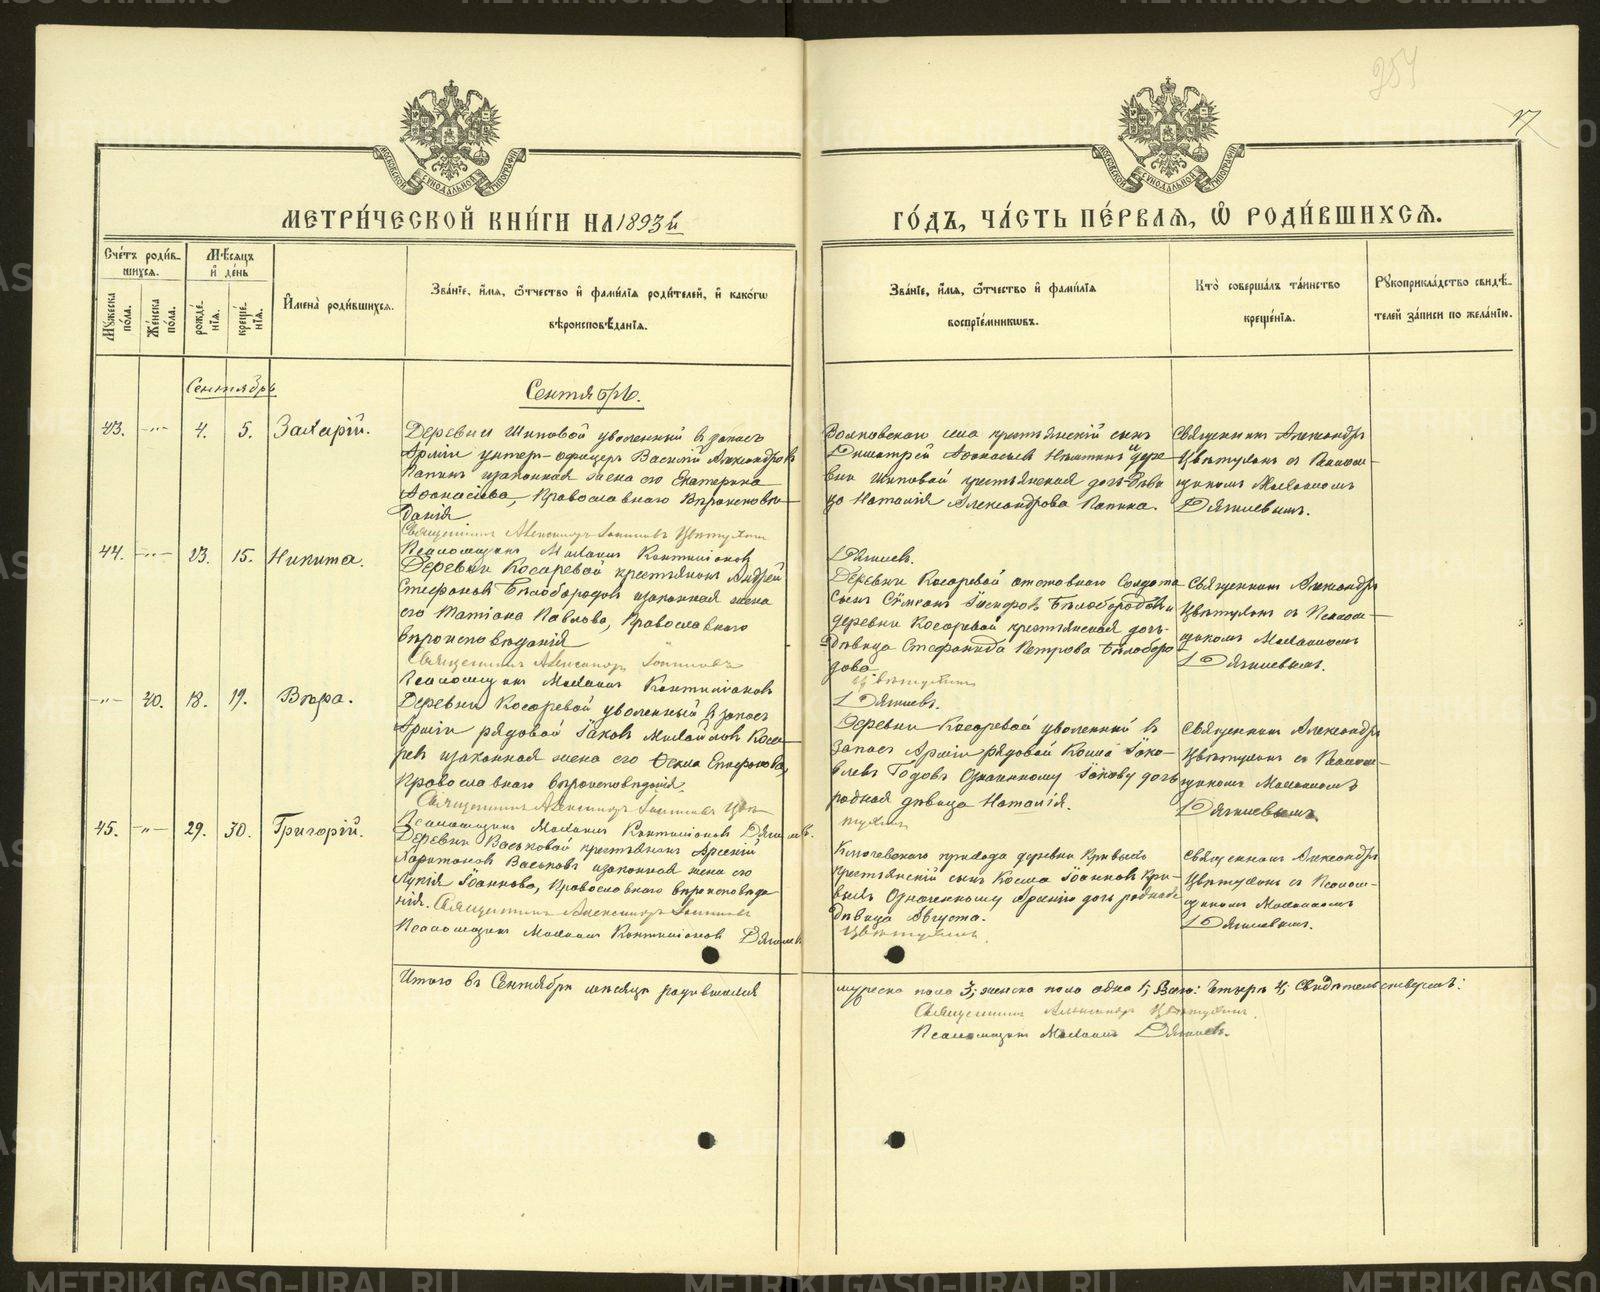 254
17
МОСКОВСКОЙ СѴНОДАЛЬНОЙ ТИПОГРАФІИ
МОСКОВСКОЙ СѴНОДАЛЬНОЙ ТИПОГРАФІИ
МЕТРИ́ЧЕСКОЙ КНИ́ГИ НА 1893й
ГО́ДЪ, ЧА́СТЬ ПЕ́РВАѦ, Ѽ РОДИ́ВШИХСѦ.
Сче́тъ роди́в-
шихсѧ.
Мѣ́сѧцъ
и҆ де́нь
Му́жеска
по́ла.
Же́нска
по́ла.
рожде́-
нїѧ.
креще́-
нїѧ.
И҆мена̀ роди́вшихсѧ.
Зва́нїе, и҆́мѧ, ѻ҆́тчество и҆ фами́лїѧ роди́телей, и҆ како́гѡ
вѣроисповѣ́данїѧ.
Зва́нїе, и҆́мѧ, ѻ҆́тчество и҆ фами́лїѧ
воспрїе́мникѡвъ.
Кто̀ соверша́лъ та́инство
креще́нїѧ.
Рꙋкоприкла́дство свидѣ́-
телей за́писи по жела́нїю.
Сентябрь
Сентябрь.
43. -"- 4. 5. Захарій.
Деревни Шиповой уволенный въ запасъ
Арміи унтер-офицеръ Василій Александровъ
Папинъ изаконная жена его Екатерина
Аѳанасіева, Православнаго Вѣроисповѣ-
данія
Священникъ Александръ Іоанновъ Цвѣтухинъ
Псаломщикъ Малахій Контиліановъ
Волковскаго села крестьянскій сынъ
Димитрій Аѳанасьевъ и дере-
вни Шиповой крестьянская дочь-дѣви
ца Наталія Александрова Папина.
Священникъ Александръ
Цвѣтухинъ съ Псалом-
щикомъ Малахіемъ
Дягилевымъ.
44. -"- 13. 15. Никита.
Дягилевъ.
Деревни Косаревой крестьянинъ Андрей
Стефановъ Бѣлобородовъ изаконная жена
его Татіана Павлова, Православнаго
вѣроисповѣданія
Священникъ Александръ Іоанновъ
Псаломщикъ Малахій Контиліановъ
Деревни Косаревой отставнаго Солдата
сынъ Сѵмеонъ Бѣлобородовъ и
деревни Косаревой крестьянская дочь-
дѣвица Стефанида Петрова Бѣлоборо
дова
Цвѣтухинъ
Дягилевъ.
Священникъ Александръ
Цвѣтухинъ съ Псалом-
щикомъ Малахіемъ
Дягилевымъ.
-"- 40. 18. 19. Вѣра.
Деревни Косаревой уволенный въ запасъ
Арміи рядовой Іаковъ Михайловъ Коса-
ревъ изаконная жена его Ѳекла Епифанова,
Православнаго вѣроисповѣданія.
Священникъ Александръ Іоанновъ Цвѣ-
Псаломщикъ Малахій Контиліановъ Дягилевъ.
Деревни Косаревой уволенный въ
запасъ Арміи рядовой Косма Іако-
влевъ Означенному Іакову дочь
родная дѣвица Наталія.
тухинъ
Священникъ Александръ
Цвѣтухинъ съ Псалом-
щикомъ Малахіемъ
Дягилевымъ
45. -"- 29. 30. Григорій.
Деревни Васьковой крестьянинъ Арсеній
Харитоновъ Васьковъ изаконная жена его
Лукія Іоаннова, Православнаго вѣроисповѣда
нія. Священникъ Александръ Іоанновъ
Псаломщикъ Малахій Контиліановъ Дягилевъ
Ключевскаго прихода деревни Кривыхъ
крестьянскій сынъ Косма Іоанновъ Кри-
выхъ Означенному Арсенію дочь родная
дѣвица Августа.
Цвѣтухинъ.
Священникъ Александръ
Цвѣтухинъ съ Псалом-
щикомъ Малахіемъ
Дягилевымъ.
Итого въ Сентябрѣ мѣсяцѣ родившихся
мужеска пола 3; женска пола одна 1; Всего: Четыре 4; Свидѣтельствуемъ:
Священникъ Александръ Цвѣтухинъ.
Псаломщикъ Малахій Дягилевъ.
METRIKI.GASO-URAL.RU